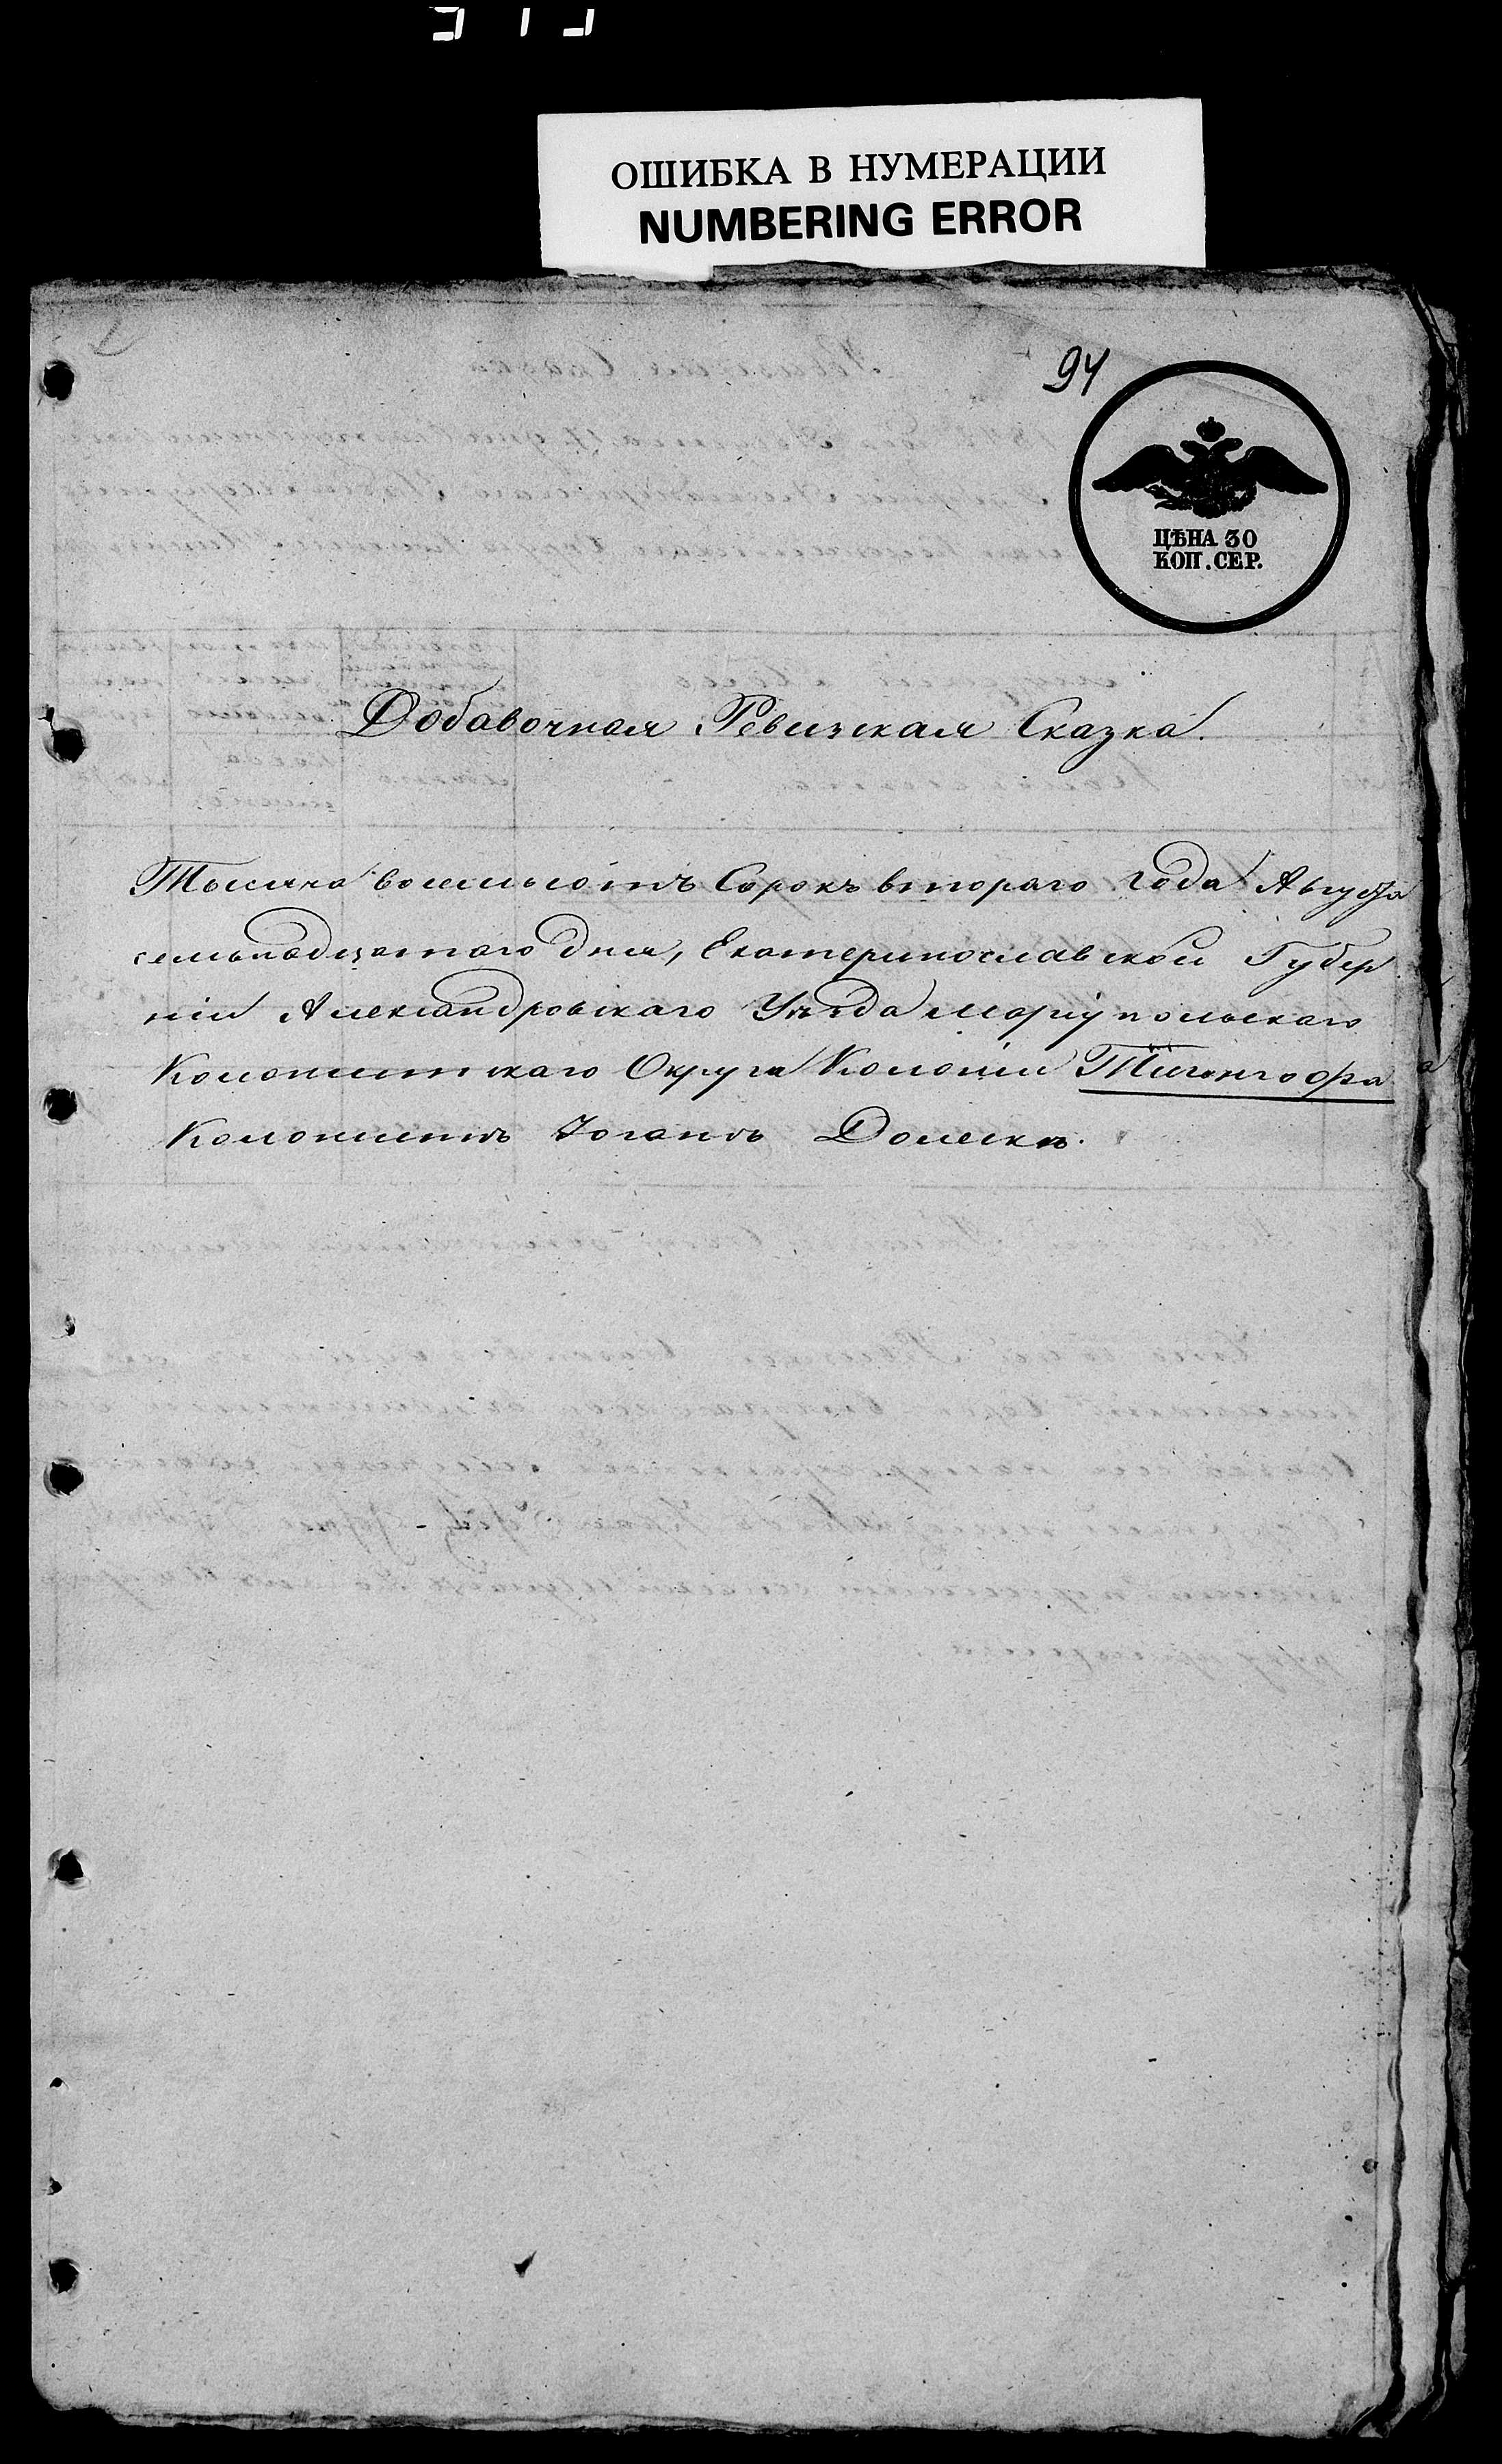 ОШИБКА В НУМЕРАЦИИ
NUMBERING ERROR
94
ЦѢНА 30
КОП. СЕР.
Добавочная Ревизская Сказка.
Тысяча восемьсотъ Сорокъ втораго года Августа
семьнадцатаго дня, Екатеринославской Губер
ніи Александровскаго Уѣзда Маріупольскаго
Колонистскаго Округа Колоніи Тигенгофа
Колонистъ Іоганъ